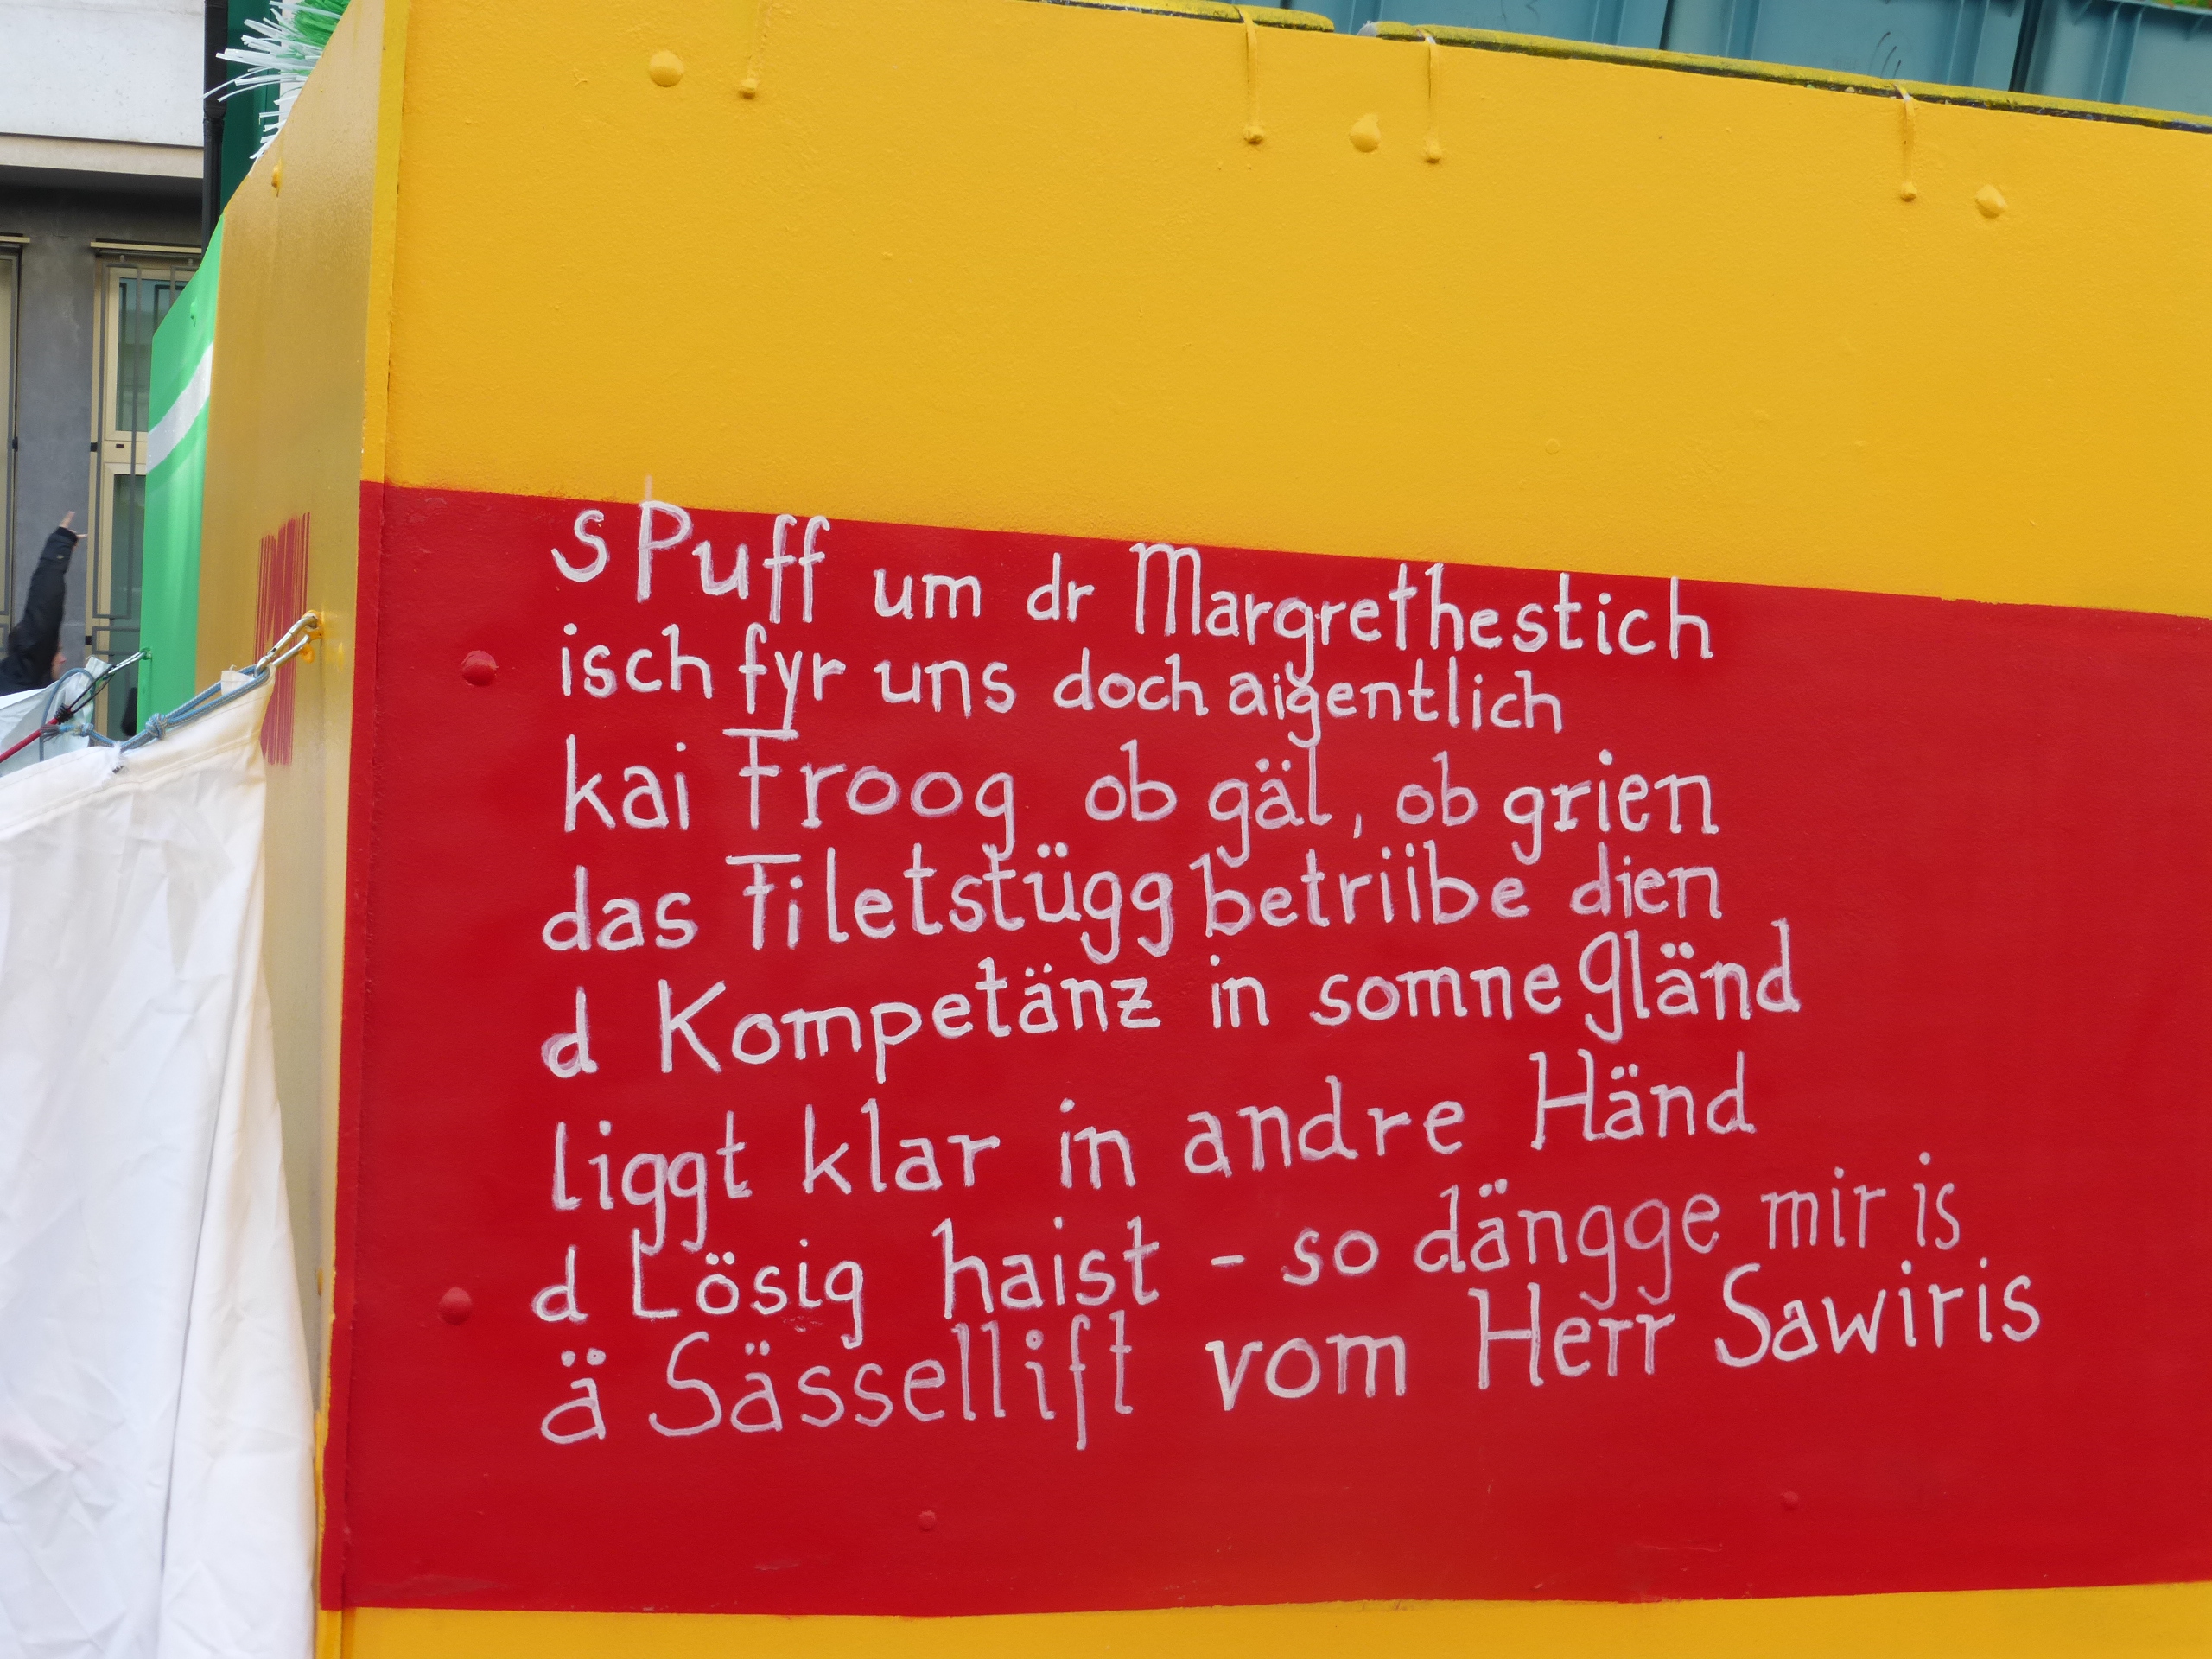 s Puff um dr Margrethestich
isch fyr uns doch aigentlich
kai Froog ob gäl, ob grien
das Filetstügg betriibe dien
d Kompetänz in somne Gländ
liggt klar in andre Händ
d Lösig haist - so dängge mir is
ä Sässellift vom Herr Sawiris